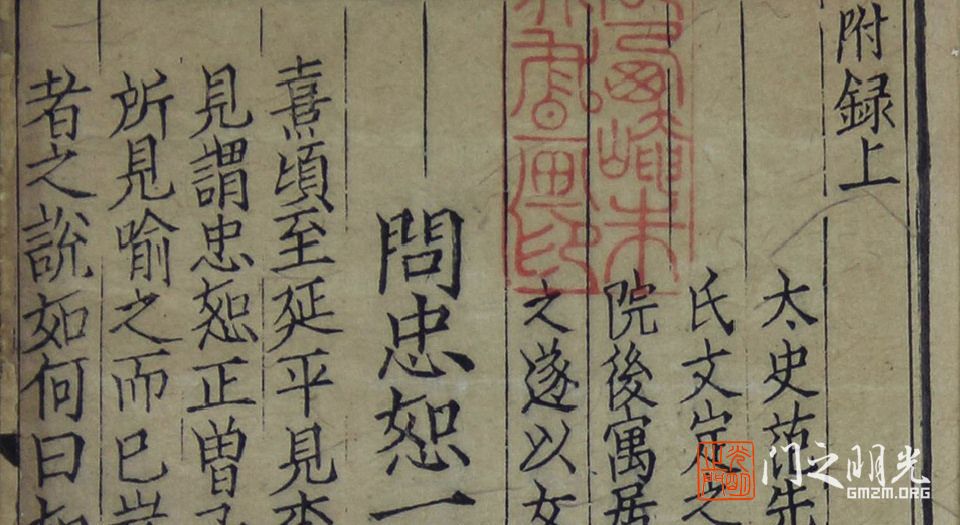 附録上
太史范先
氏文定之
院後寓居
之遂以女
問忠恕一
熹頃至延平見李
見謂忠恕正曽子
所見喻之而已豈
者之說如何曰如
光明之门
GMZM.ORG